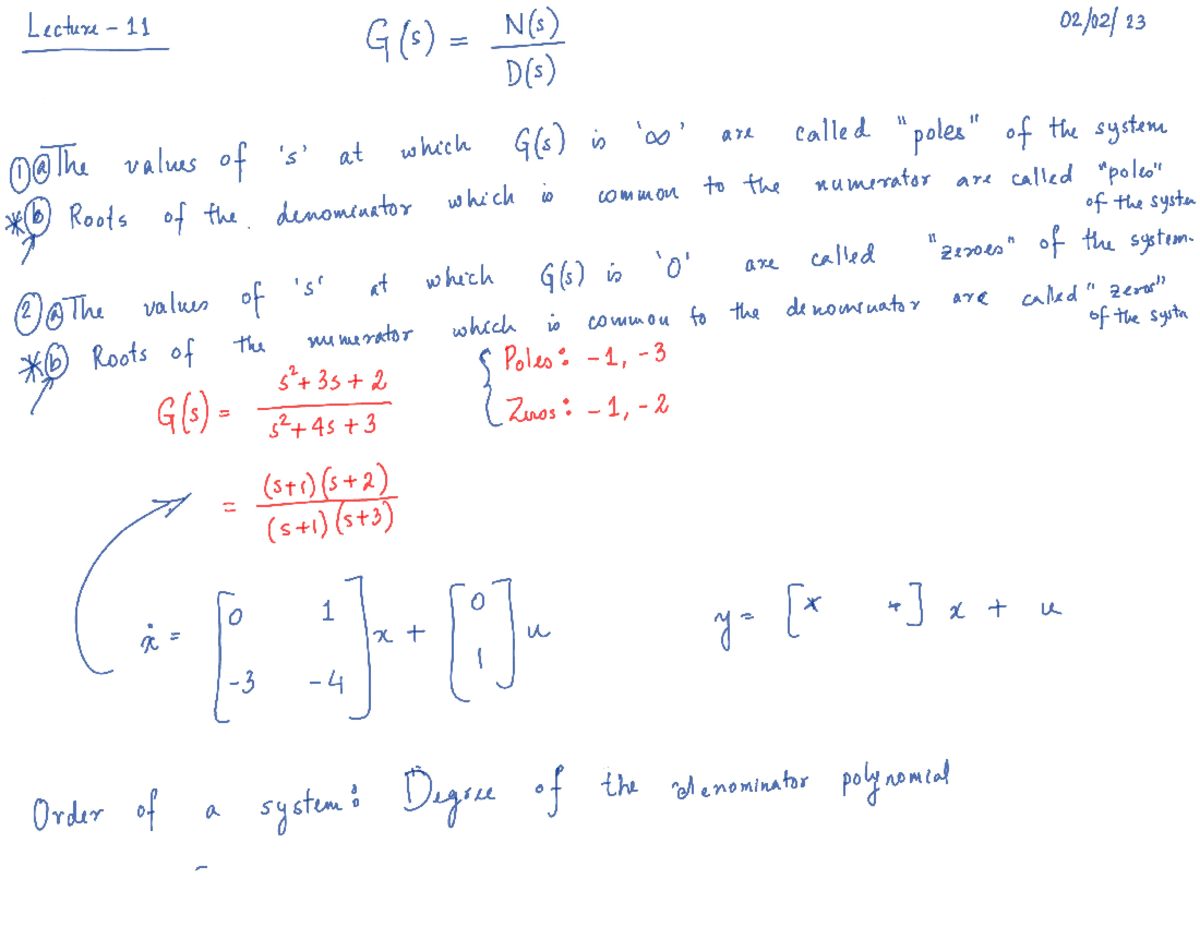 Lecture - 11
G(s) = N(s) / D(s)
02/02/23
① ⓐ The values of 's' at which G(s) is '∞' are called "poles" of the system
* ⓑ Roots of the denominator which is common to the numerator are called "poles" of the system
② ⓐ The values of 's' at which G(s) is '0' are called "zeroes" of the system.
* ⓑ Roots of the numerator which is common to the denominator are called "zeros" of the system
G(s) = (s² + 3s + 2) / (s² + 4s + 3)
{ Poles: -1, -3
Zeros: -1, -2
= (s+1)(s+2) / (s+1)(s+3)
ẋ = [0 1; -3 -4] x + [0; 1] u
y = [* *] x + u
Order of a system: Degree of the denominator polynomial